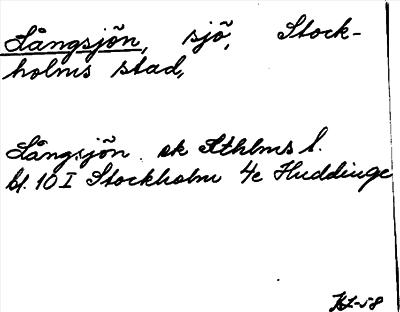 Långsjön, sjö, Stock-
holms stad,
Långsjön. ek Sthlms l.
bl. 10 I Stockholm 4e Huddinge
KL-58